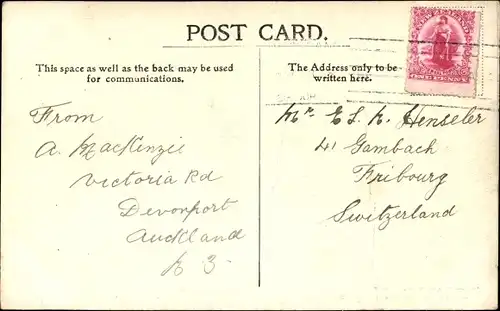 POST CARD.
This space as well as the back may be used
for communications.
The Address only to be
written here.
NEW ZEALAND
ONE PENNY
From
A. MacKenzie
Victoria Rd
Devonport
Auckland
N Z
Mr E L K. Henseler
41 Gambach
Fribourg
Switzerland